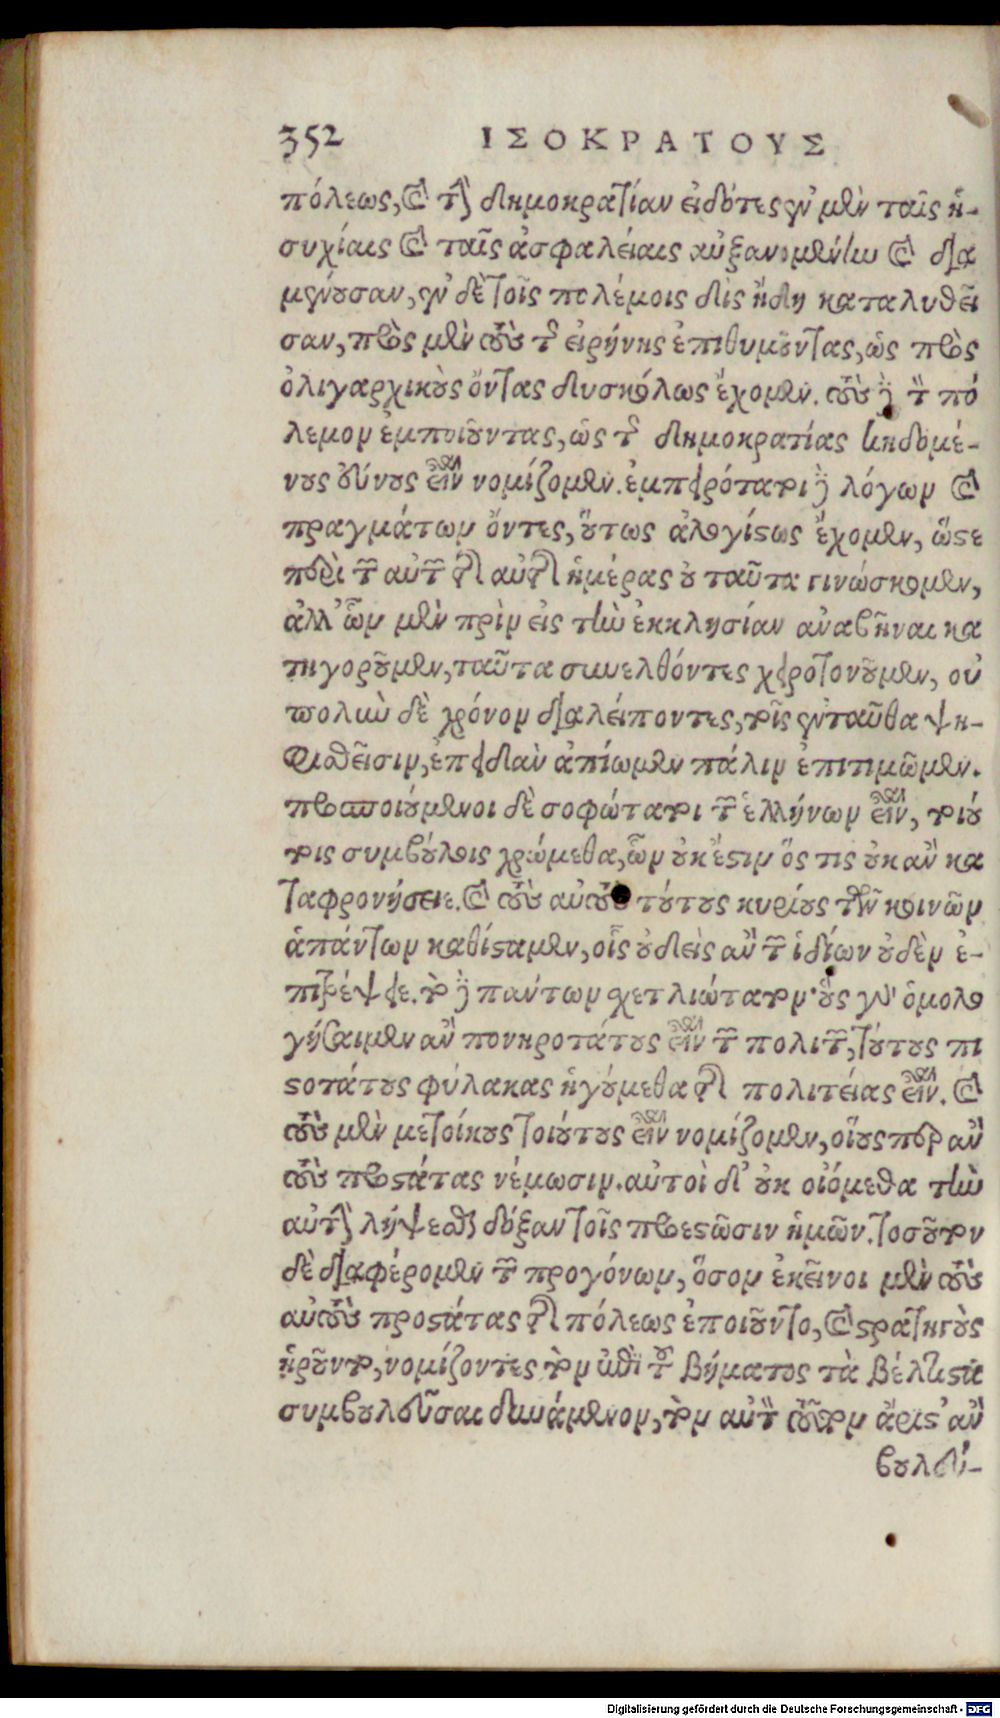 352 ΙΣΟΚΡΑΤΟΥΣ
πόλεως, καὶ τὴν δημοκρατίαν εἰδότες ἐν μὲν ταῖς ἡ-
συχίαις καὶ ταῖς ἀσφαλείαις αὐξανομένην καὶ δια
μένουσαν, ἐν δὲ τοῖς πολέμοις δὶς ἤδη καταλυθεῖ
σαν, πρὸς μὲν τοὺς τῆς εἰρήνης ἐπιθυμοῦντας, ὡς πρὸς
ὀλιγαρχικοὺς ὄντας δυσκόλως ἔχομεν. τοὺς δὲ τὸν πό
λεμον ἐμποιοῦντας, ὡς τῆς δημοκρατίας κηδομέ-
νους εὔνους εἶναι νομίζομεν. ἐμπειρότατοι δὲ λόγων καὶ
πραγμάτων ὄντες, οὕτως ἀλογίστως ἔχομεν, ὥστε
περὶ τῶν αὐτῶν τῆς αὐτῆς ἡμέρας οὐ ταῦτα γινώσκομεν,
ἀλλ' ὧν μὲν πρὶν εἰς τὴν ἐκκλησίαν ἀναβῆναι κα
τηγοροῦμεν, ταῦτα συνελθόντες χειροτονοῦμεν, οὐ
πολὺν δὲ χρόνον διαλείποντες, τοῖς ἐνταῦθα ψη-
φισθεῖσιν, ἐπειδὰν ἀπίωμεν πάλιν ἐπιτιμῶμεν.
προσποιούμενοι δὲ σοφώτατοι τῶν ἑλλήνων εἶναι, τοιού
τοις συμβούλοις χρώμεθα, ὧν οὐκ ἔστιν ὅς τις οὐκ ἂν κα
ταφρονήσειε. καὶ τοὺς αὐτοὺς τούτους κυρίους τῶν κοινῶν
ἁπάντων καθίσταμεν, οἷς οὐδεὶς ἂν τῶν ἰδίων οὐδὲν ἐ-
πιτρέψειε. τὸ δὲ πάντων σχετλιώτατον· οὓς γὰρ ὁμολο
γήσαιμεν ἂν πονηροτάτους εἶναι τῶν πολιτῶν, τούτους πι
στοτάτους φύλακας ἡγούμεθα τῆς πολιτείας εἶναι. καὶ
τοὺς μὲν μετοίκους τοιούτους εἶναι νομίζομεν, οἵους περ ἂν
τοὺς προστάτας νέμωσιν. αὐτοὶ δ' οὐκ οἰόμεθα τὴν
αὐτὴν λήψεσθαι δόξαν τοῖς προεστῶσιν ἡμῶν. τοσοῦτον
δὲ διαφέρομεν τῶν προγόνων, ὅσον ἐκεῖνοι μὲν τοὺς
αὐτοὺς προστάτας τῆς πόλεως ἐποιοῦντο, καὶ στρατηγοὺς
ᾑροῦντο, νομίζοντες τὸν ἐπὶ τοῦ βήματος τὰ βέλτιστα
συμβουλεῦσαι δυνάμενον, τὸν αὐτὸν τοῦτον ἄριστ' ἂν
βουλεύ-
Digitalisierung gefördert durch die Deutsche Forschungsgemeinschaft - DFG